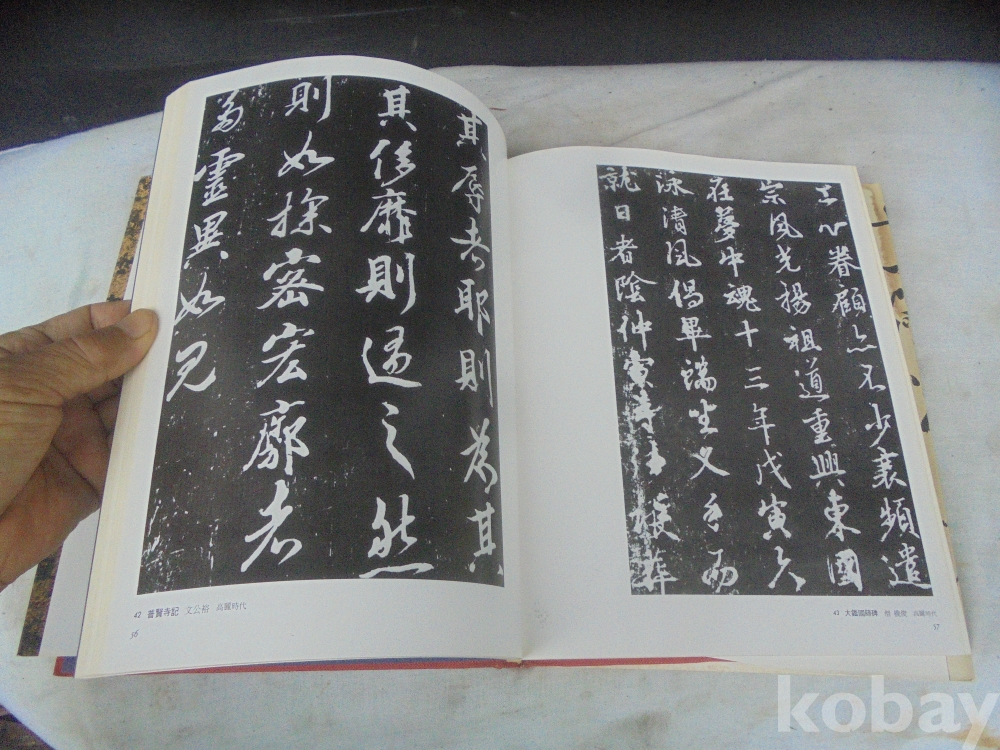 其辱者耶則為其
其侈靡則過之然
則如探密宏廓者
為靈異如見
42 普賢寺記 文公裕 高麗時代
56
心眷顧亦不少衰頻遣
宗風光揚祖道重興東國
在夢中魂十三年戊寅六
泳清風偈畢端坐叉手而
就日者陰仲寅
43 大鑑國師碑 高麗時代
57
kobay